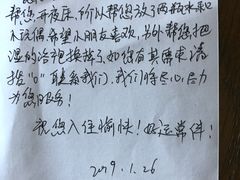 帮您开夜床,所以帮您放了两瓶水和
玩偶,希望小朋友喜欢,另外帮您把
湿的浴袍换掉了,如您有其需求请
按"0"联系我们,我们将尽心尽力
为您服务!
祝您入住愉快!好运常伴!
2019.1.26